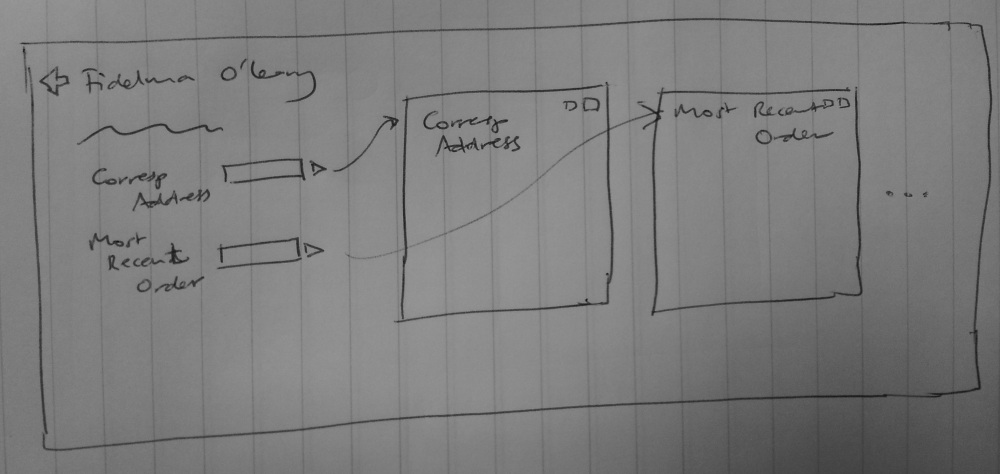 Fidelma O'Leary
Corresp
Address
Most
Recent
Order
Corresp
Address
Most Recent
Order